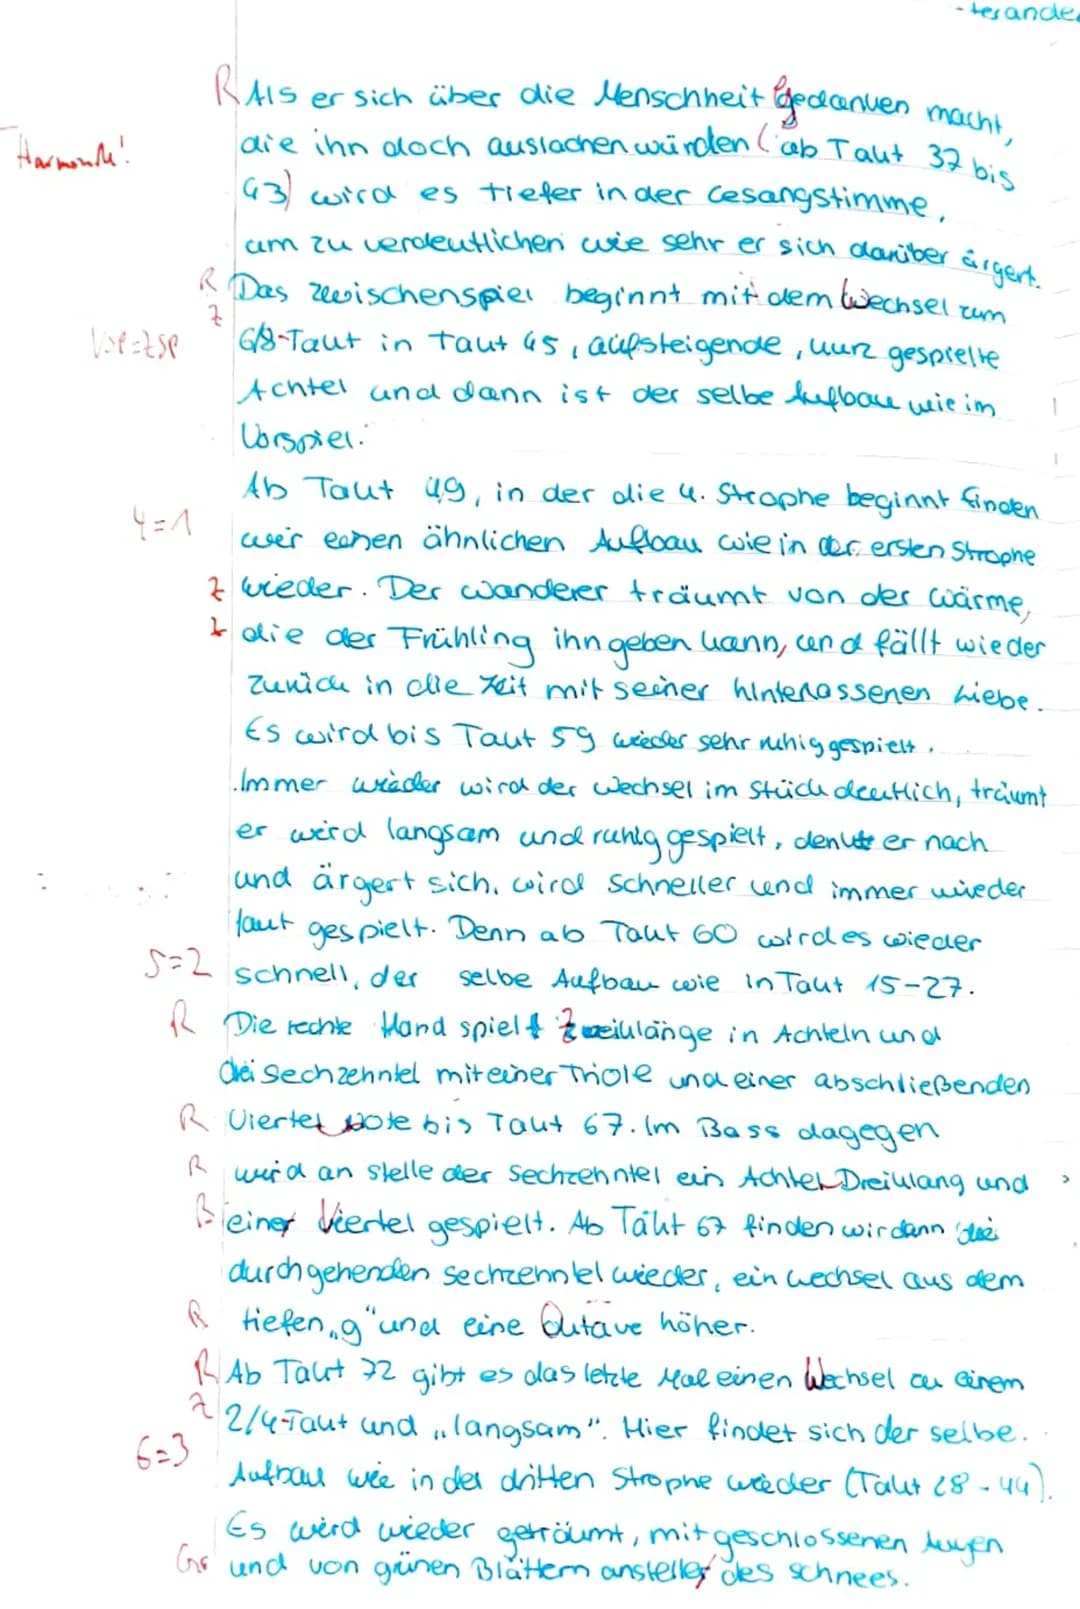 -terande
R Als er sich über die Menschheit Gedanken macht,
Harmonik!
die ihn doch auslachen würden (ab Takt 37 bis
43) wird es tiefer in der Gesangstimme,
um zu verdeutlichen wie sehr er sich darüber ärgert.
R Das Zwischenspiel beginnt mit dem Wechsel zum
Z
Vsp=Zsp 6/8-Takt in Takt 45, aufsteigende, kurz gespielte
Achtel und dann ist der selbe Aufbau wie im
Vorspiel.
Ab Takt 49, in der die 4. Strophe beginnt finden
4=1 wir einen ähnlichen Aufbau wie in der ersten Strophe
Z wieder. Der Wanderer träumt von der Wärme,
Z die der Frühling ihn geben kann, und fällt wieder
zurück in die Zeit mit seiner hinterlassenen Liebe.
Es wird bis Takt 59 wieder sehr ruhig gespielt.
Immer wieder wird der Wechsel im Stück deutlich, träumt
er wird langsam und ruhig gespielt, denkt er nach
und ärgert sich, wird schneller und immer wieder
laut gespielt. Denn ab Takt 60 wird es wieder
5=2 schnell, der selbe Aufbau wie in Takt 15-27.
R Die rechte Hand spielt Zweiklänge in Achteln und
drei Sechzehntel mit einer Triole und einer abschließenden
R Viertel Note bis Takt 67. Im Bass dagegen
R wird an stelle der Sechzehntel ein Achtel Dreiklang und
B einer Viertel gespielt. Ab Takt 67 finden wir dann die
durchgehenden Sechzehntel wieder, ein Wechsel aus dem
R tiefen „g" und eine Oktave höher.
R Ab Takt 72 gibt es das letzte Mal einen Wechsel zu einem
Z 2/4-Takt und „langsam". Hier findet sich der selbe
6=3
Aufbau wie in der dritten Strophe wieder (Takt 28-44).
Es wird wieder geträumt, mit geschlossenen Augen
Gr und von grünen Blättern anstelle des Schnees.